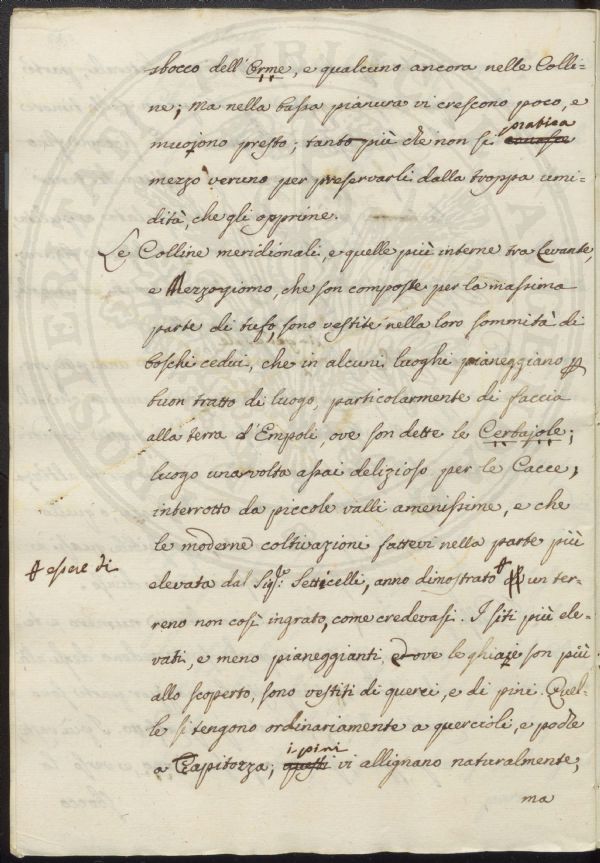 sbocco dell'Orme, e qualcuno ancora nelle Colli-
ne; ma nella bassa pianura vi crescono poco, e
pratica
muojono presto; tanto più che non si
mezzo veruno per preservarli dalla troppa umi-
dità, che gli opprime.
Le Colline meridionali, e quelle più interne tra Levante,
e Mezzogiorno, che son composte per la massima
parte di tufo, sono vestite nella loro sommità di
boschi cedui, che in alcuni luoghi pianeggiano p
buon tratto di luogo, particolarmente di faccia
alla terra d'Empoli ove son dette le Cerbajole;
luogo una volta assai delizioso per le Cacce,
interrotto da piccole valli amenissime, e che
le moderne coltivazioni fattevi nella parte più
essere di
elevata dal Sigr. Setticelli, anno dimostrato un ter-
reno non così ingrato, come credevasi. I siti più ele-
vati, e meno pianeggianti, e dove le ghiaje son più
allo scoperto, sono vestiti di querci, e di pini. Quel-
le si tengono ordinariamente a quercioli, e poste
i pini
a Capitozza; questi vi allignano naturalmente;
ma